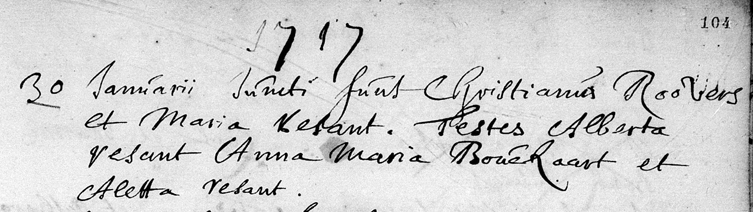 104
1717
30 Januarii Juncti sunt Christianus Roovers
et Maria Vesant. Testes Alberta
vesant Anna Maria Bouckaart et
Aletta vesant.